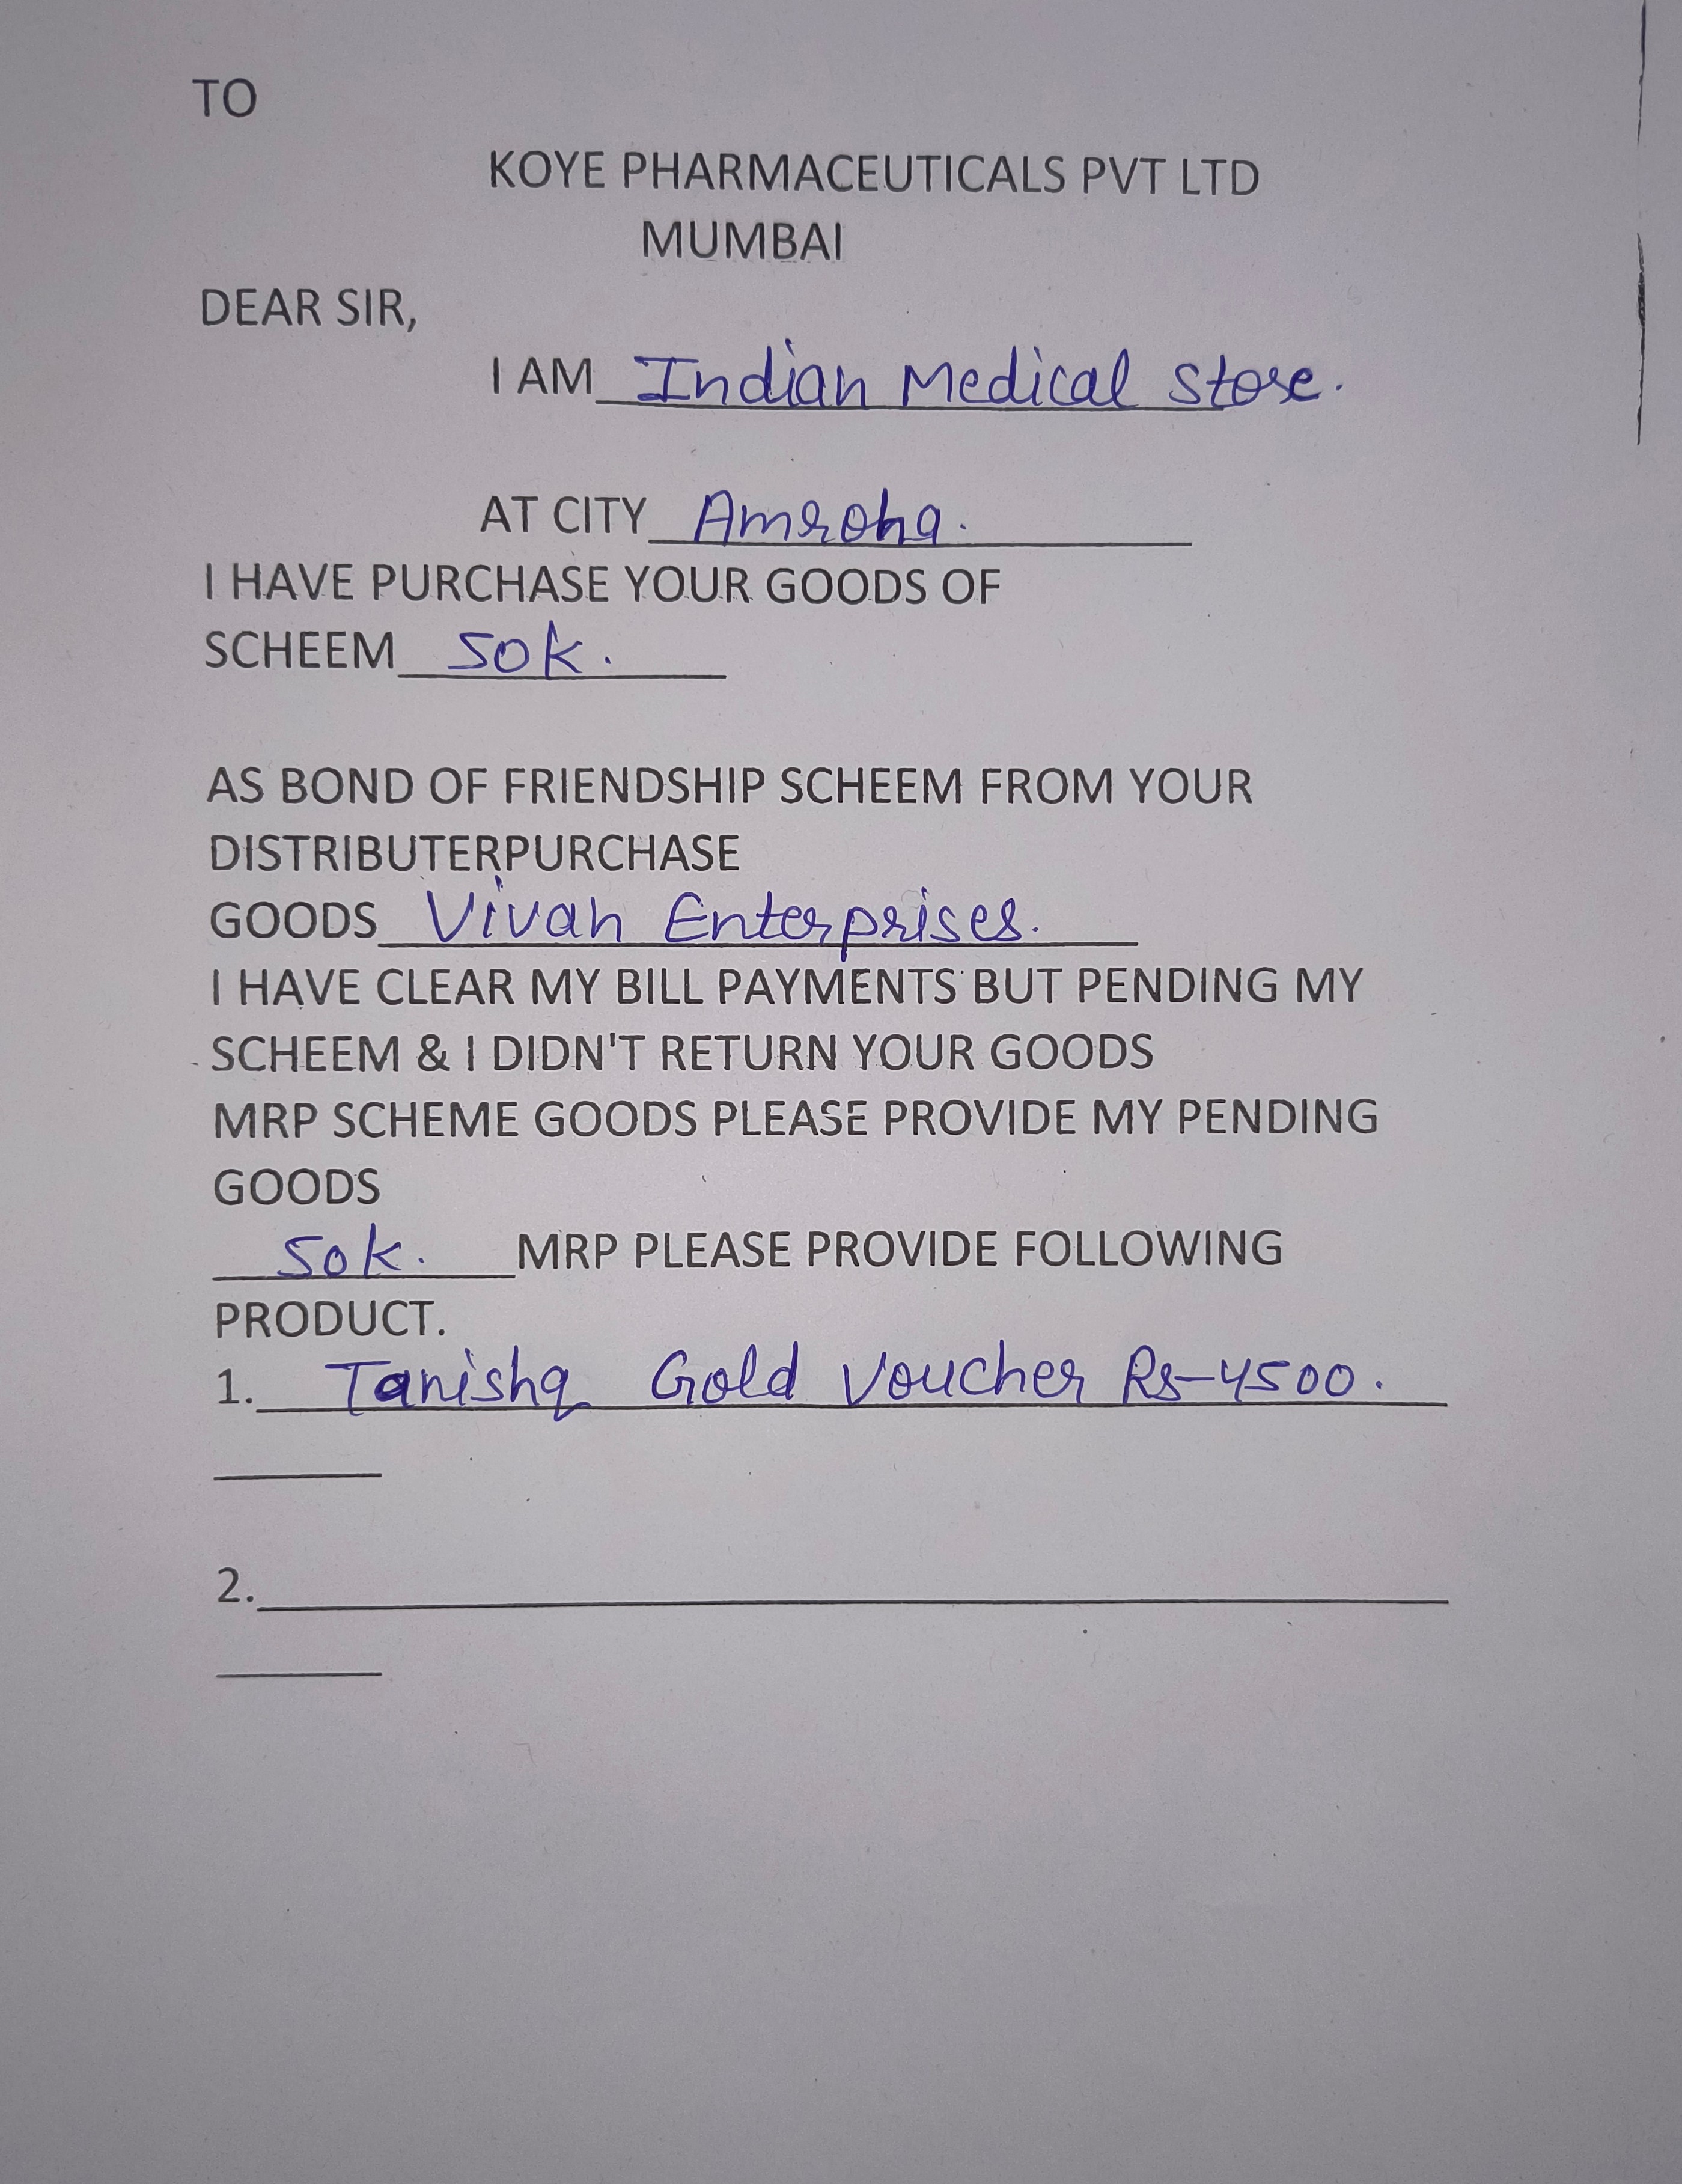 TO
KOYE PHARMACEUTICALS PVT LTD
MUMBAI
DEAR SIR,
I AM Indian Medical Store.
AT CITY Amroha.
I HAVE PURCHASE YOUR GOODS OF
SCHEEM 50k.
AS BOND OF FRIENDSHIP SCHEEM FROM YOUR
DISTRIBUTERPURCHASE
GOODS Vivah Enterprises.
I HAVE CLEAR MY BILL PAYMENTS BUT PENDING MY
SCHEEM & I DIDN'T RETURN YOUR GOODS
MRP SCHEME GOODS PLEASE PROVIDE MY PENDING
GOODS
50k. MRP PLEASE PROVIDE FOLLOWING
PRODUCT.
1. Tanishq Gold Voucher Rs-4500.
2.